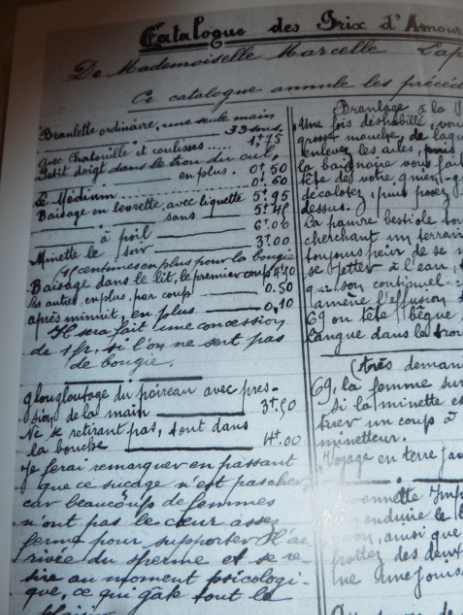 Catalogue des Prix d'Amour
De Mademoiselle Marcelle Lap
Ce catalogue annule les précéd
Branlette ordinaire, une seule main
33 sous
avec Chatouille et coulisses 1f.75
Petit doigt dans le trou du cul,
en plus. 0f.50
Le Médium 0f.60
Baisage en levrette, avec liquette 5f.95
sans 5f.45
à poil 6f.00
Minette le soir 3f.00
(4 centimes en plus pour la bougie
Baisage dans le lit, le premier coup 4f.50
les autres, en plus, par coup 0.50
après minuit, en plus 0,10
Il sera fait une concession
de 1 fr, si l'on ne sert pas
de bougie.
glougloutage du poireau avec pres-
sion de la main 3f.50
Ne se retirant pas, tout dans
la bouche 4f.00
Je ferai remarquer en passant
que ce suçage n'est pas cher
car beaucoup de femmes
n'ont pas le cœur assez
ferme pour supporter l'ar
rivée du sperme et se re-
tire au moment psicologi-
que, ce qui gâte tout le
plaisir
Branlage à la
Une fois déshabillé, vou
grosse mouche, de laq
enlevez les ailes, puis
la baignoire vous fait
tête de votre
décalotez, puis posez
dessus.
La pauvre bestiole tou
cherchant un terrain
toujours peur de se n
se jetter à l'eau,
son continuel
amène l'effusion
69 ou tête bêche
langue dans le trou
(très deman
69, la femme sur
Si la minette es
tuer un coup à
minetteur.
Voyage en terre jau
onduire le
ainsi que
frottez des deux